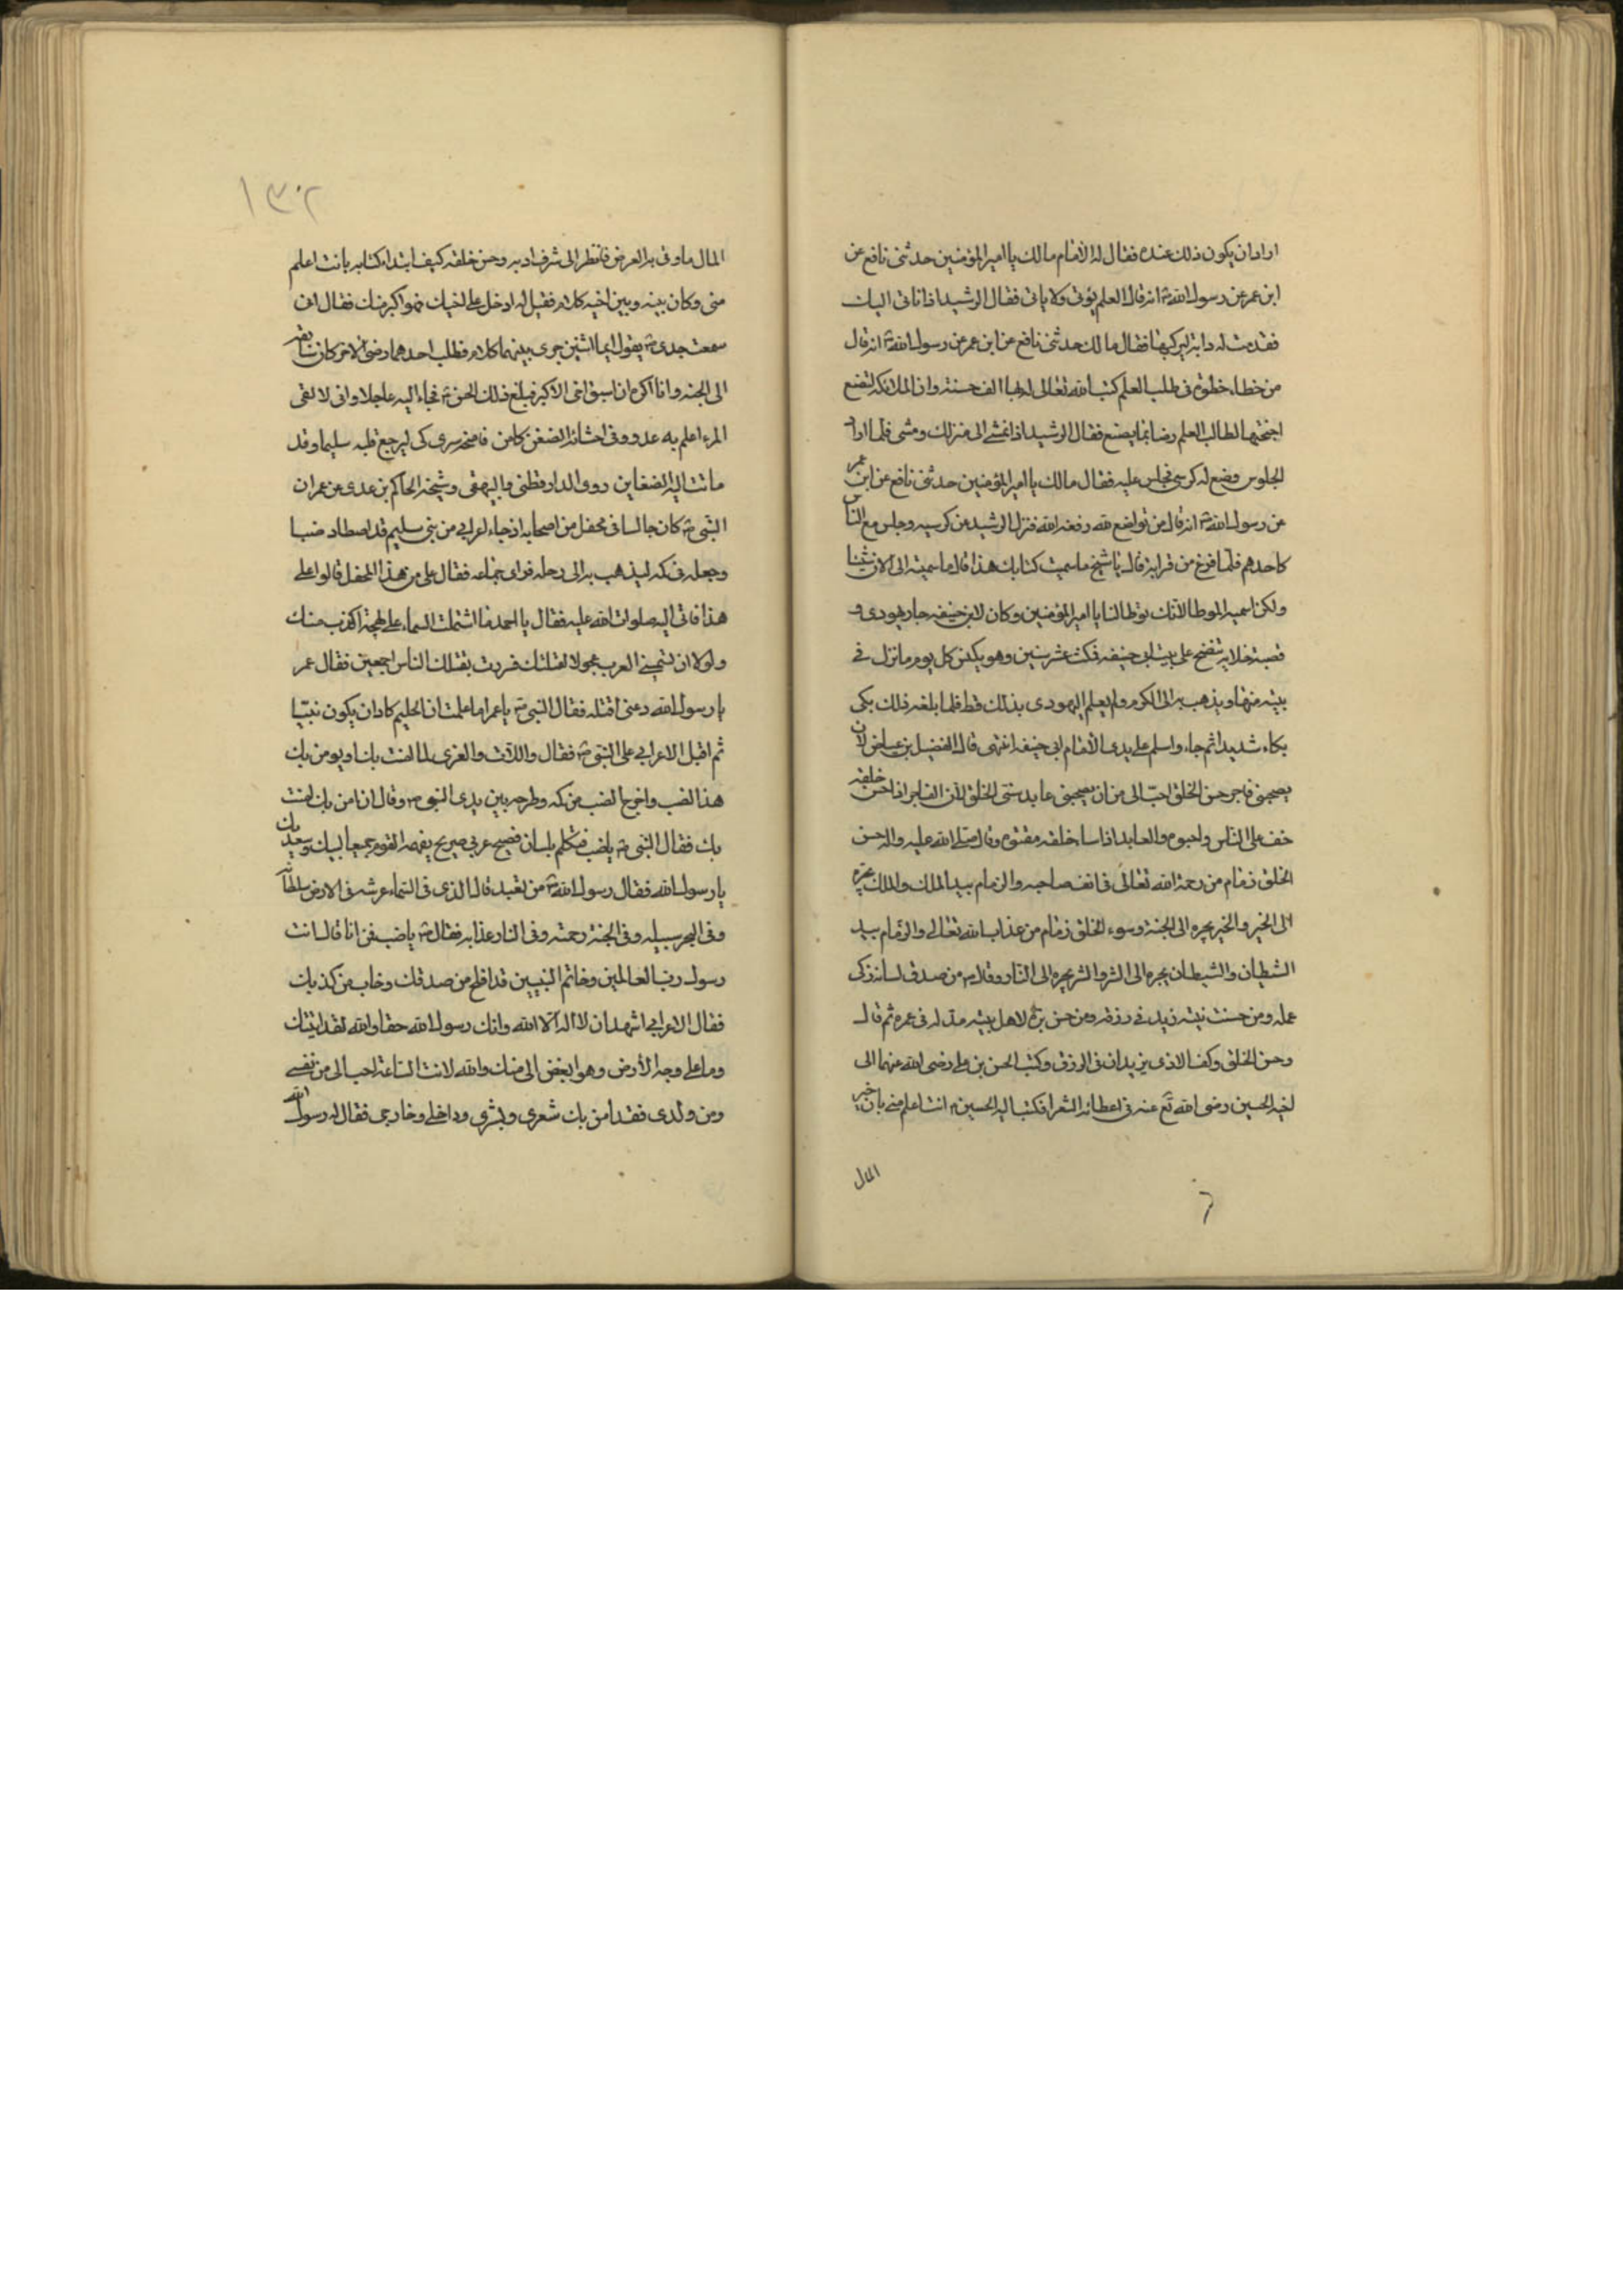 اراد ان يكون ذلك عنده فقال له الامام مالك يا امير المؤمنين حدثنى نافع عن
ابن عمر عن رسول الله ص انه قال العلم يؤتى ولا ياتى فقال الرشيد اذا ناتى اليك
فقدمت له دابة ليركبها فقال مالك حدثنى نافع عن ابن عمر عن رسول الله ص انه قال
من خطاء خطوة فى طلب العلم كتب الله تعالى له بها الف حسنة وان الملائكة لتضع
اجنحتها لطالب العلم رضا بما يصنع فقال الرشيد اذا نمشى الى منزلك ومشى فلما اراد
الجلوس وضع له كرسى فجلس عليه فقال مالك يا امير المؤمنين حدثنى نافع عن ابن عمر
عن رسول الله ص انه قال من تواضع لله رفعه الله فنزل الرشيد عن كرسيه وجلس مع الناس
كاحدهم فلما فرغ من قرابة قال يا شيخ ما سميت كتابك هذا قال ما سميته الى الان شيئا
ولكن اسميه الموطا لانك توطا لنا يا امير المؤمنين وكان لابى حنيفه جار يهودى و
قصبة خلايه تنضح على بيت ابى حنيفه فمكث عشر سنين وهو يكنس كل يوم ما نزل فى
بيته منها ويذهب به الى الكوم ولم يعلم اليهودى بذلك قط فلما بلغه ذلك بكى
بكاء شديدا ثم جاء واسلم على يدى الامام ابى حنيفه انتهى قال الفضيل بن عياض لان
يصحبنى فاجر حسن الخلق احب الى من ان يصحبنى عابد سئى الخلق لان الفاجر اذا حسن خلقه
خف على الناس واحبوه والعابد اذا ساء خلقه مقتوه وقال صلى الله عليه واله حسن
الخلق زمام من رحمة الله تعالى فى انف صاحبه والزمام بيد الملك والملك يجره
الى الخير والخير يجره الى الجنة وسوء الخلق زمام من عذاب الله تعالى والزمام بيد
الشطيان والشيطان يجره الى الشر والشر يجره الى النار وقال ص من صدق لسانه زكى
عمله ومن حسنت نيته زيد فى رزقه ومن حسن بره لاهل بيته مد له فى عمره ثم قال
وحسن الخلق وكف الاذى يزيدان فى الرزق وكتب الحسن بن على رضى الله عنهما الى
اخيه الحسين رضى الله تع عنه فى اعطائه الشعرا فكتب اليه الحسين انت اعلم منى بان خير
المال
٦
١٣٢
المال ما وقى به العرض فانظر الى شرف ادبه وحسن خلقه كيف ابتداء كتابه بانت اعلم
منى وكان بينه وبين اخيه كلام فقيل له ادخل على اخيك فهو اكبر منك فقال انى
سمعت جدى ص يقول ايما اثنين جرى بينهما كلام فطلب احدهما رضى الاخر كان سابقه
الى الجنه وانا اكره ان اسبق اخى الاكبر فبلغ ذلك الحسن فجاء اليه عاجلا وانى لالقى
المرء اعلم به عدو وفى احشائه الضغن كامن فامنحه سرى كى يرجع قلبه سليما وقد
ماتت اليه الضغاين روى الدارقطنى والبيهقى وشيخه الحاكم بن عدى عن عمران
النبى ص كان جالسا فى محفل من اصحابه اذ جاء اعرابى من بنى سليم قد اصطاد ضبا
وجعله فى كمه ليذهب به الى رحله فراى جماعه فقال على من هذا المحفل قالوا على
هذا فاتى اليه صلوات الله عليه فقال يا احمد ما اشتملت السماء على لهجة اكذب منك
ولولا ان تسمينى العرب عجولا لقتلتك فسررت بقتلك الناس اجمعين فقال عمر
يا رسول الله دعنى اقتله فقال النبى ص يا عمر اما علمت ان الحليم كاد ان يكون نبيا
ثم اقبل الاعرابى على النبى ص فقال واللات والعزى لما امنت بك او يومن بك
هذا الضب واخرج الضب من كمه وطرحه بين يدى النبى ص وقال ان امن بك امنت
بك فقال النبى ص يا ضب فتكلم بلسان فصيح عربى صريح يفهمه القوم جميعا لبيك وسعديك
يا رسول الله فقال رسول الله ص من تعبد قال الذى فى السماء عرشه وفى الارض سلطانه
وفى البحر سبيله وفى الجنة رحمته وفى النار عذابه فقال ص يا ضب فمن انا قال انت
رسول رب العالمين وخاتم النبيين قد افلح من صدقك وخاب من كذبك
فقال الاعرابى اشهد ان لا اله الا الله وانك رسول الله حقا والله لقد اتيتك
وما على وجه الارض وهو ابغض الى منك والله لانت الساعة احب الى من نفسى
ومن ولدى فقد امن بك شعرى وبشرى وداخلى وخارجى فقال له رسول الله